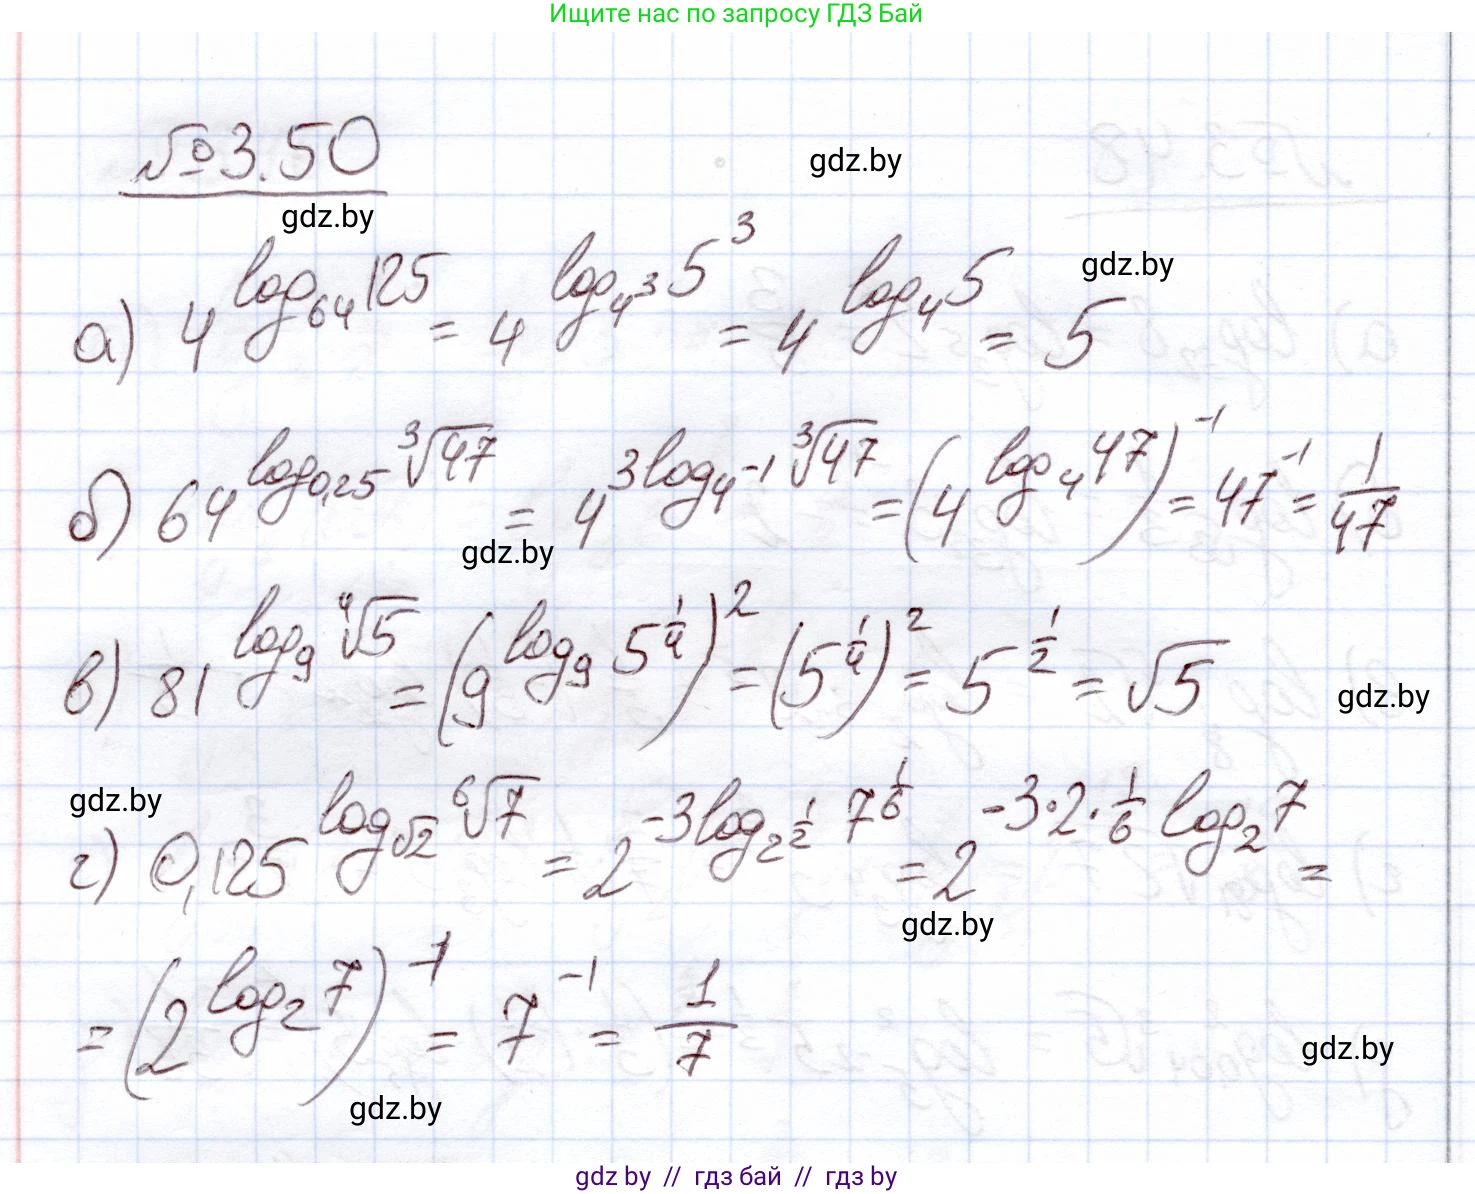 Ищите нас по запросу ГДЗ Бай
№3.50
gdz.by
gdz.by
gdz.by
а) 4^(log_64 125) = 4^(log_(4^3) 5^3) = 4^(log_4 5) = 5
б) 64^(log_0,25 ∛47) = 4^(3log_(4^-1) ∛47) = (4^(log_4 47))^-1 = 47^-1 = 1/47
gdz.by
в) 81^(log_9 ∜5) = (9^(log_9 5^(1/4)))^2 = (5^(1/4))^2 = 5^(1/2) = √5
gdz.by
gdz.by
г) 0,125^(log_√2 ⁶√7) = 2^(-3log_(2^(1/2)) 7^(1/6)) = 2^(-3·2·1/6 log_2 7) =
gdz.by
= (2^(log_2 7))^-1 = 7^-1 = 1/7
gdz.by
gdz.by
gdz by // гдз бай // гдз by